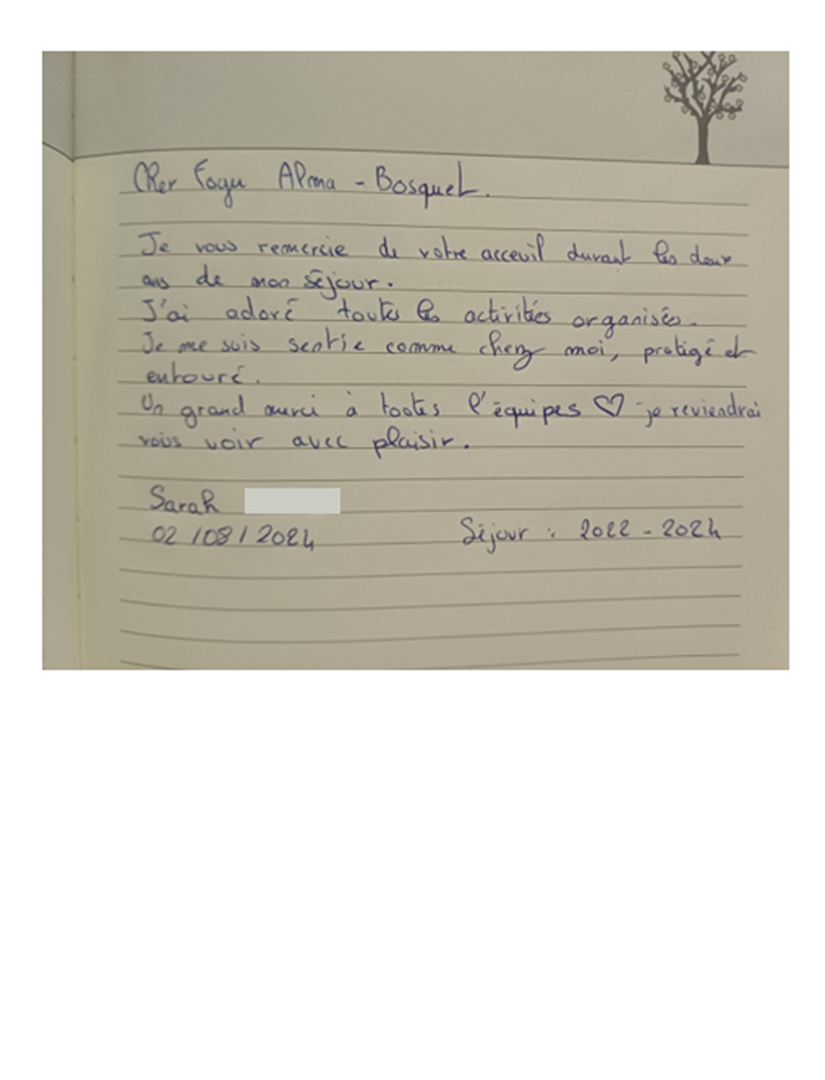 Cher Foyer Alma - Bosquet.
Je vous remercie de votre acceuil durant les deux
ans de mon séjour.
J'ai adoré toutes les activités organisés.
Je me suis sentie comme chez moi, protégé et
entouré.
Un grand merci à toutes l'équipes ♡ je reviendrai
vous voir avec plaisir.
Sarah
02/08/2024 Séjour : 2022 - 2024